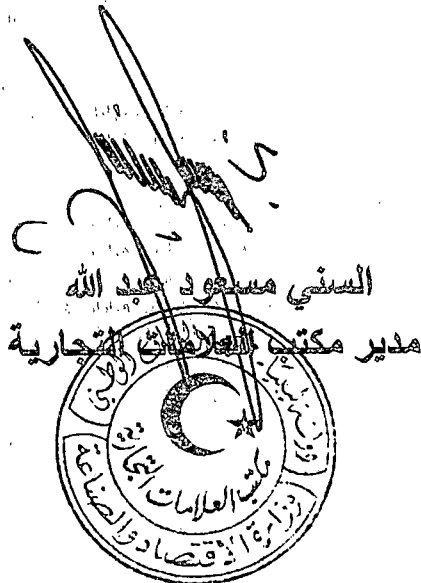 السني مسعود عبد الله
مدير مكتب العلامات التجارية
الوطني
مكتب العلامات التجارية
وزارة الاقتصاد والصناعة